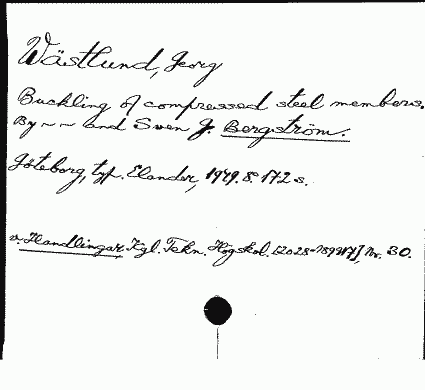 Wästlund, Georg
Buckling of compressed steel members.
By ~ ~ and Sven G. Bergström.
Göteborg, typ. Elander, 1949. 8. 172 s.
v. Handlingar. Kgl. Tekn. Högskol. Nr. 30.